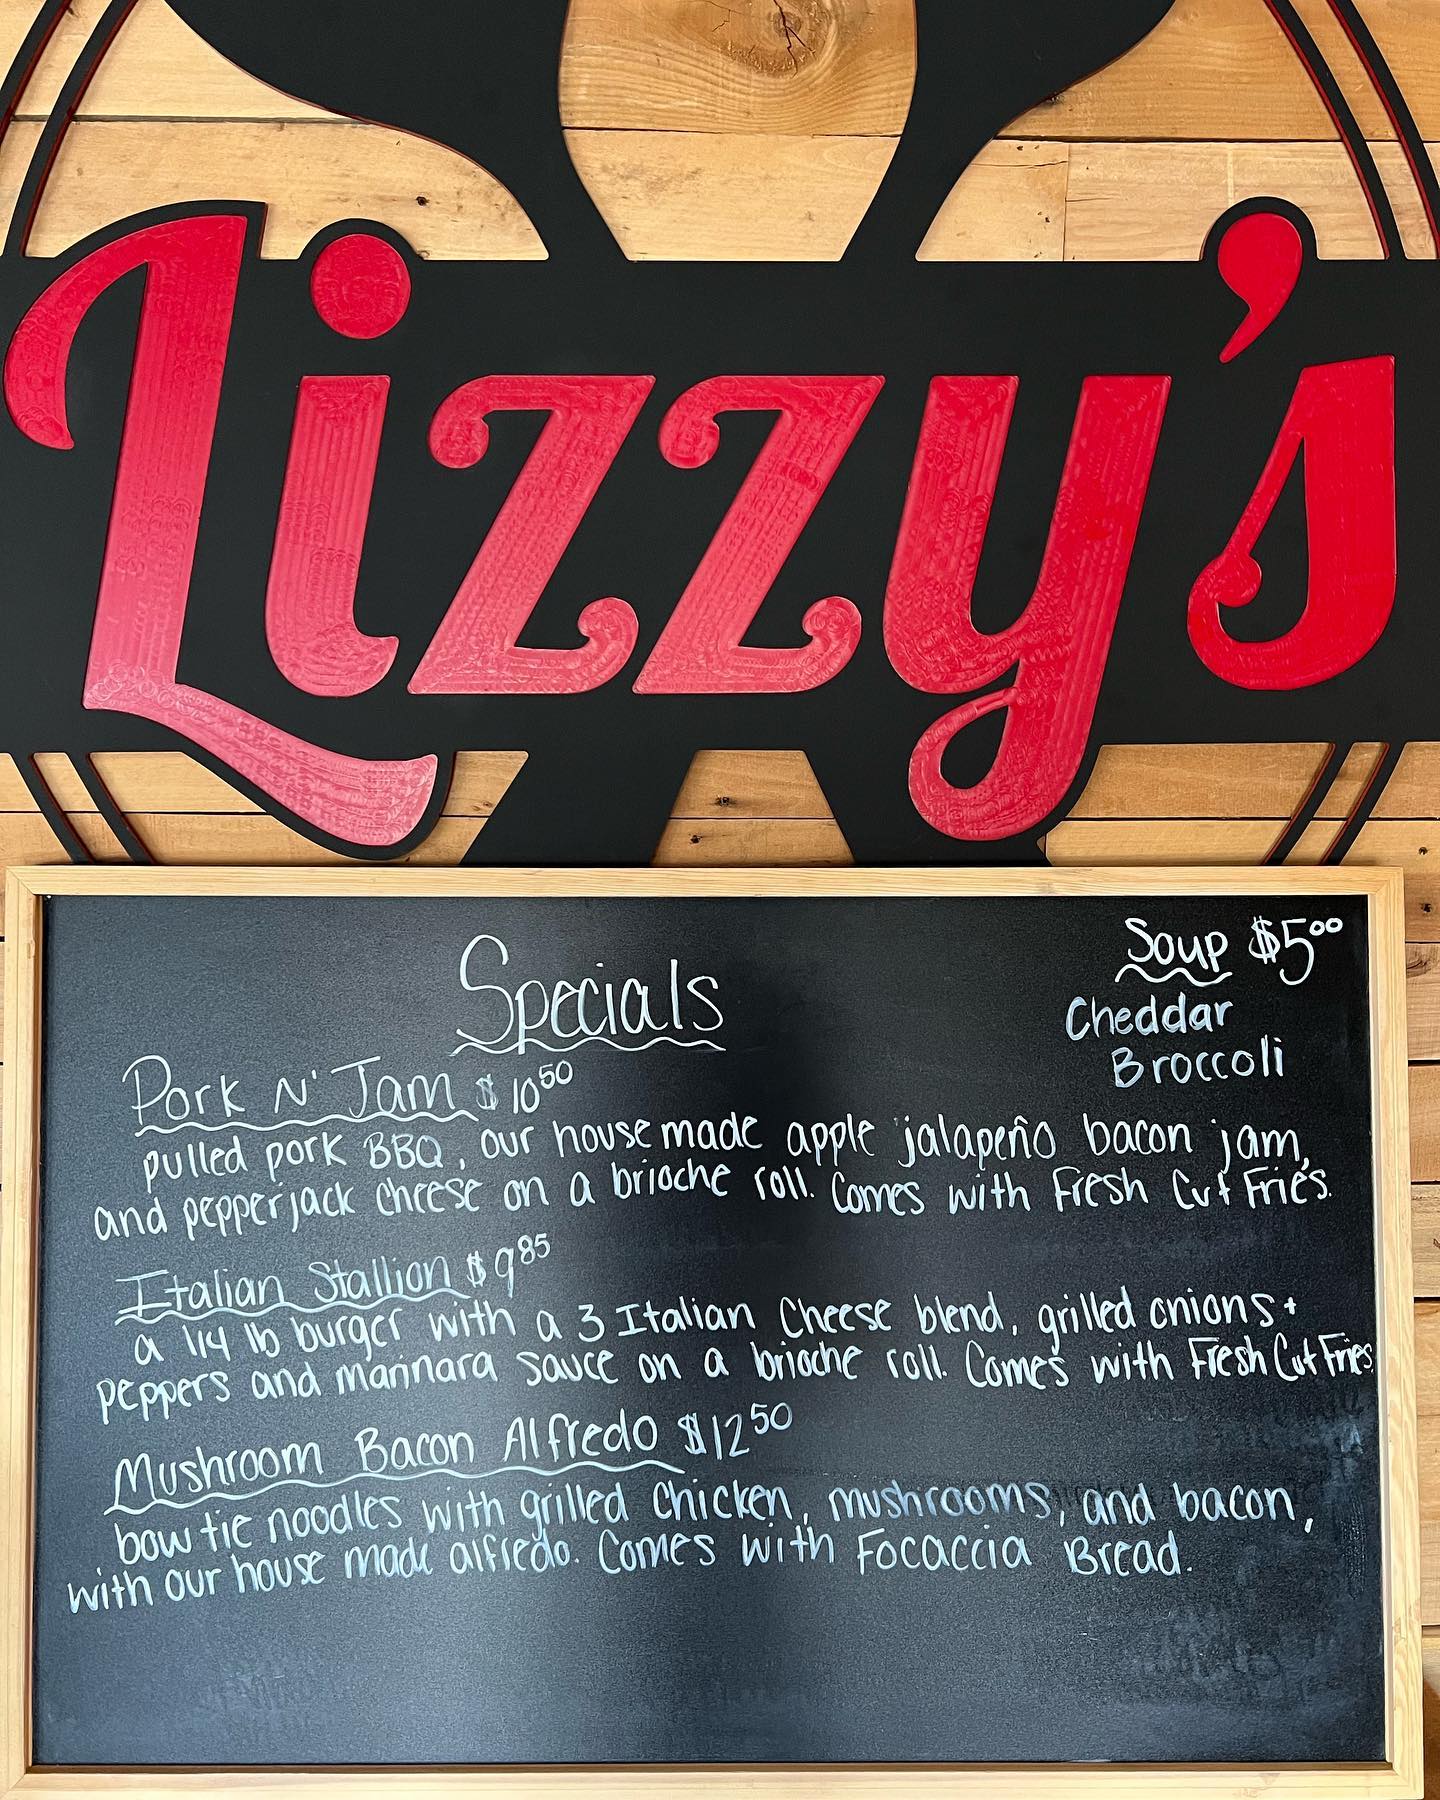 Lizzy's
Soup $5.00
Cheddar
Broccoli
Specials
Pork N' Jam $10.50
pulled pork BBQ, our house made apple jalapeño bacon jam,
and pepperjack cheese on a brioche roll. Comes with Fresh Cut Fries.
Italian Stallion $9.85
a 1/4 lb burger with a 3 Italian Cheese blend, grilled onions +
peppers and marinara sauce on a brioche roll. Comes with Fresh Cut Fries.
Mushroom Bacon Alfredo $12.50
bow tie noodles with grilled Chicken, mushrooms, and bacon,
with our house made alfredo. Comes with Focaccia Bread.